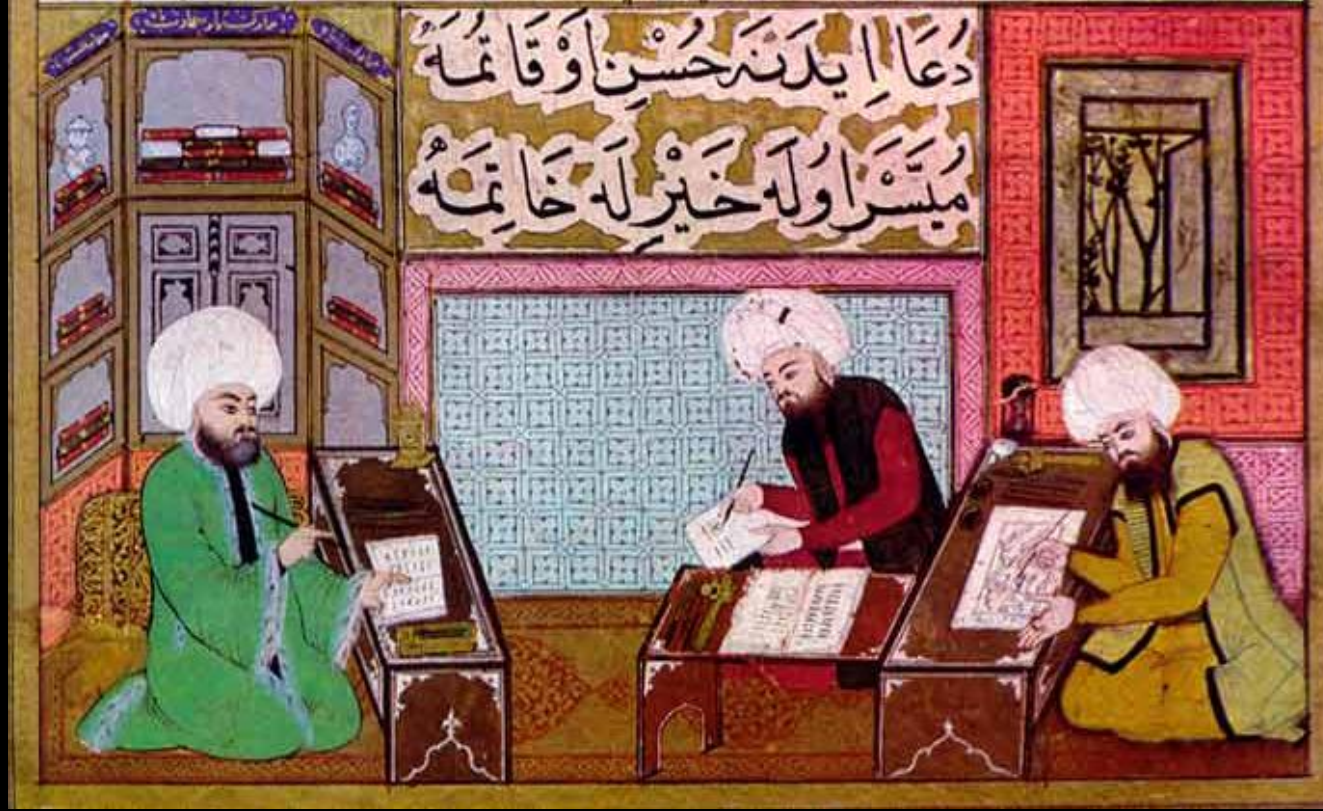 دُعَا اِيدَنَه حُسْنِ اَوْقَاتمَهْ
مُيَسَّرْ اوُلَه خَيْرِلَه خَاتِمَهْ